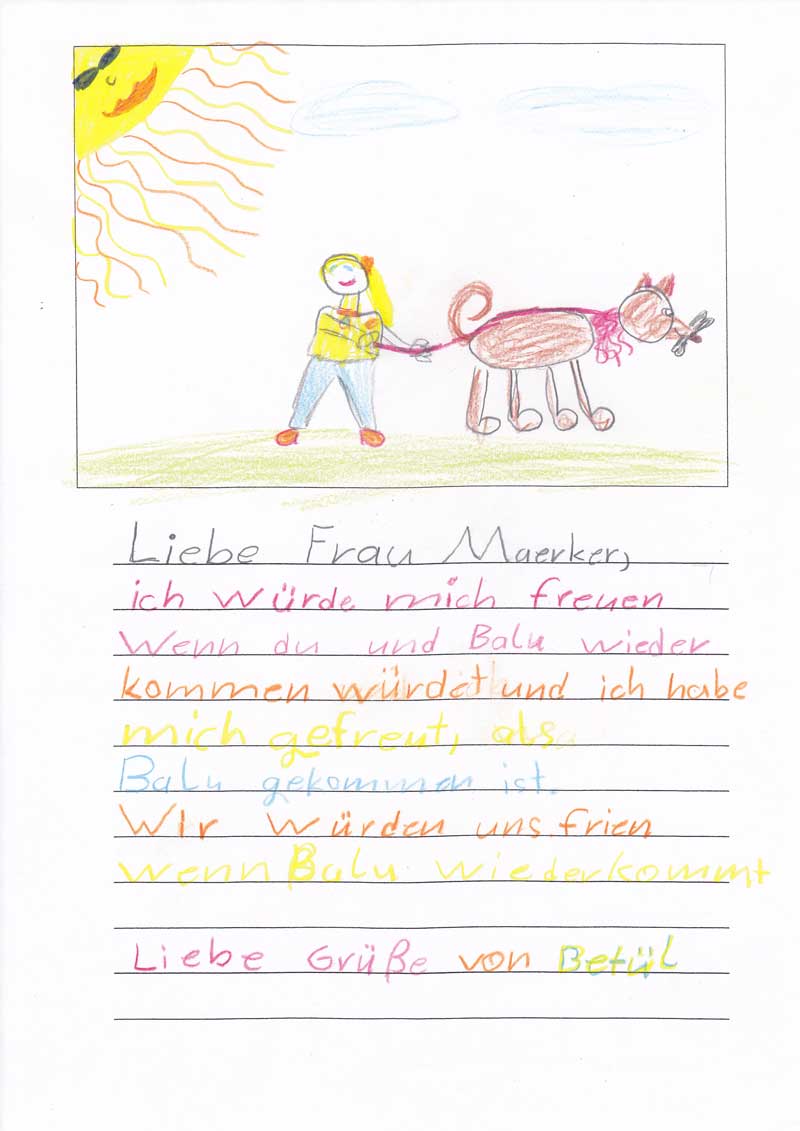 Liebe Frau Maerker,
ich würde mich freuen
Wenn du und Balu wieder
kommen würdet und ich habe
mich gefreut, als
Balu gekommen ist.
Wir würden uns frien
wenn Balu wiederkommt
Liebe Grüße von Betül